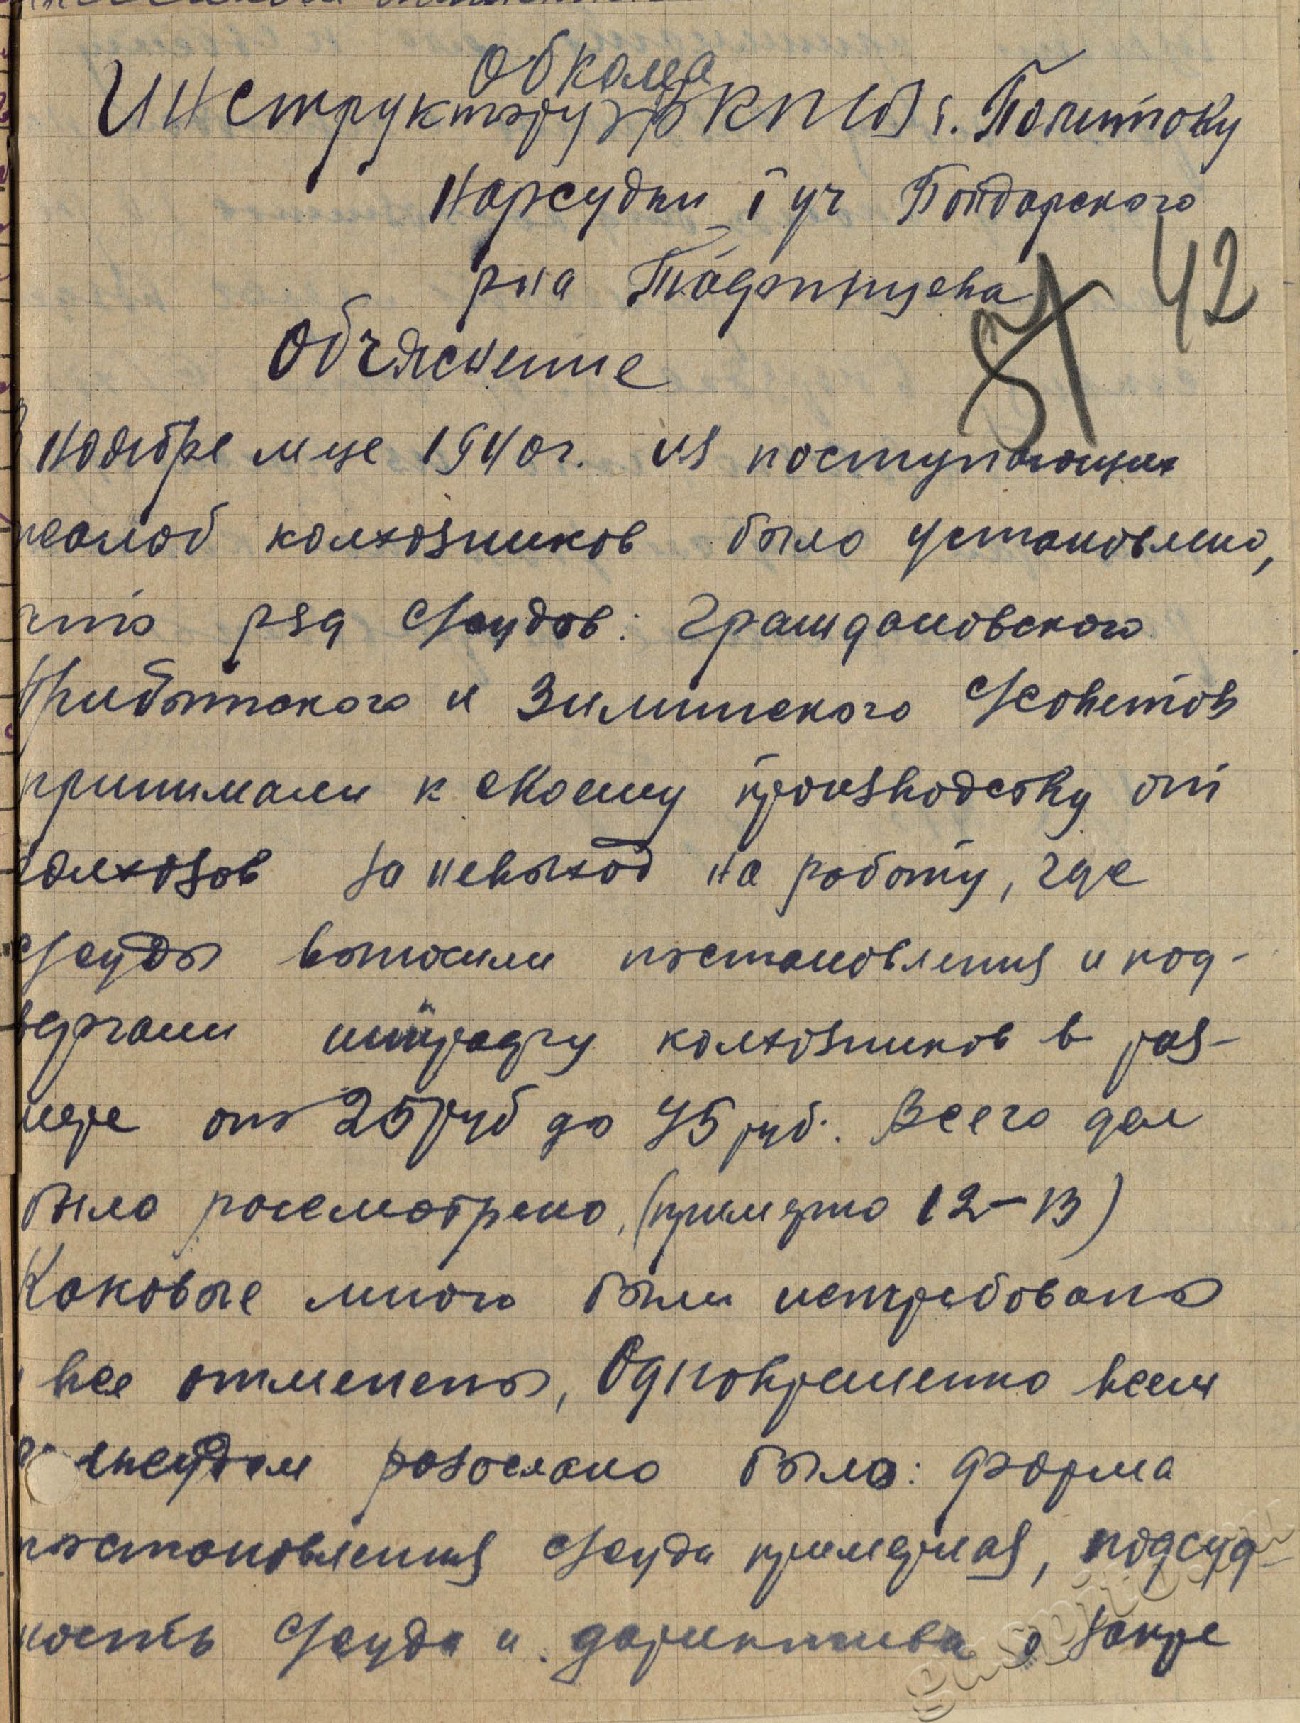 Обкома
Инструктору ВКП(б) т. Политову
Нарсудьи 1 уч Бондарского
рна
Объяснение
Ноябре м-це 1940 г. из поступающих
жалоб колхозников было установлено,
что ряд с/судов: Граждановского
Прибытского и Зиминского с/советов
принимали к своему производству от
колхозов за невыход на работу, где
с/суды выносили постановления и под-
вергали штрафу колхозников в раз-
мере от 25 руб до 75 руб. Всего дел
было рассмотрено (примерно 12-13)
Каковые мною были истребованы
и все отменены, Одновременно всем
сельсудам розослано было: форма
постановления с/суда примерная, подсуд-
ность с/суда и дериктива о запре
42